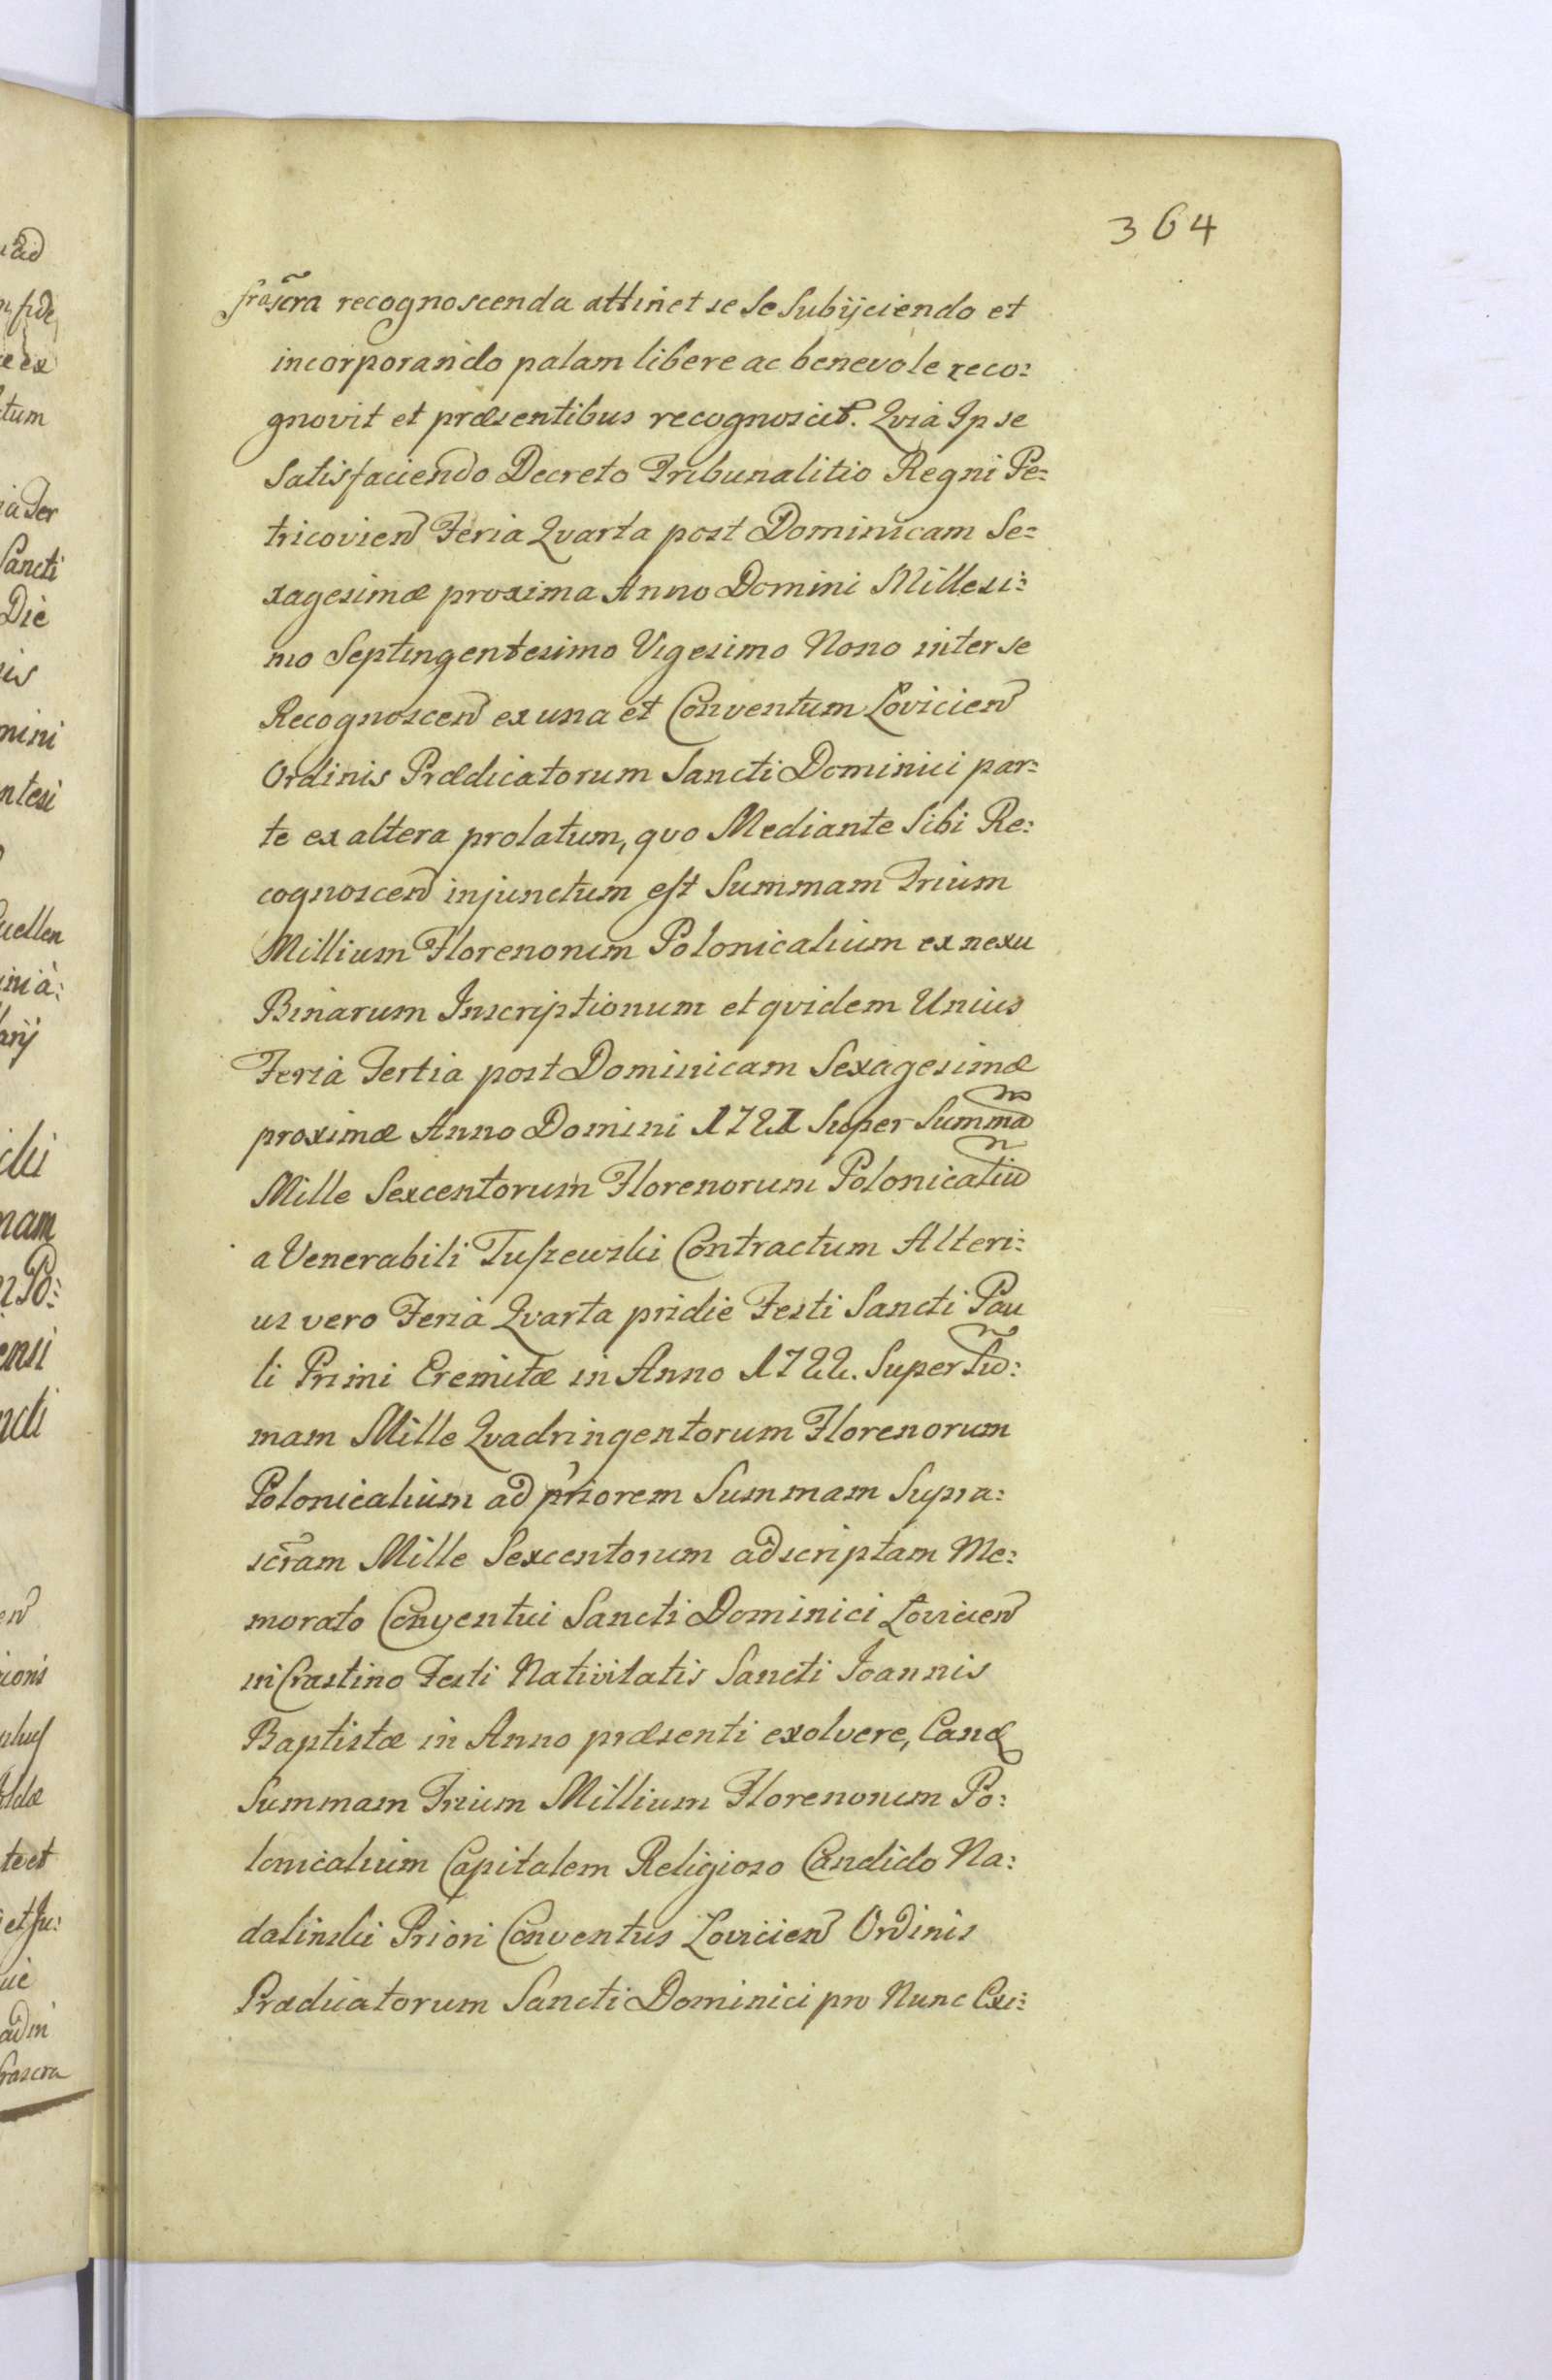 364
frascra recognoscenda attinet se se subijciendo et
incorporando palam libere ac benevole reco:
gnovit et præsentibus recognoscit. Qvia Ipse
Satisfaciendo Decreto Tribunalitio Regni Pe:
tricovien Feria Qvarta post Dominicam Se:
xagesimæ proxima Anno Domini Millesi:
mo Septingentesimo Vigesimo Nono inter se
Recognoscen ex una et Conventum Lovicien
Ordinis Prædicatorum Sancti Dominici par:
te ex altera prolatum, qvo Mediante Sibi Re:
cognoscen injunctum est Summam Trium
Millium Florenorum Polonicalium ex nexu
Binarum Inscriptionum et qvidem Unius
Feria Tertia post Dominicam Sexagesimæ
proximæ Anno Domini 1721 Super Summã
Mille Sexcentorum Florenorum Polonicaliũ
a Venerabili Tuszewski Contractum Alteri:
us vero Feria Qvarta pridie Festi Sancti Pau
li Primi Eremitæ in Anno 1722. Super Sũ:
mam Mille Qvadringentorum Florenorum
Polonicalium ad priorem Summam Supra:
scram Mille Sexcentorum adscriptam Me:
morato Conventui Sancti Dominici Lovicien
in Crastino Festi Nativitatis Sancti Joannis
Baptistæ in Anno præsenti exolvere,
Summam Trium Millium Florenorum Po:
lonicalium Capitalem Religioso Candido Na:
dalinski Priori Conventus Lovicien Ordinis
Prædicatorum Sancti Dominici pro Nunc Exi: